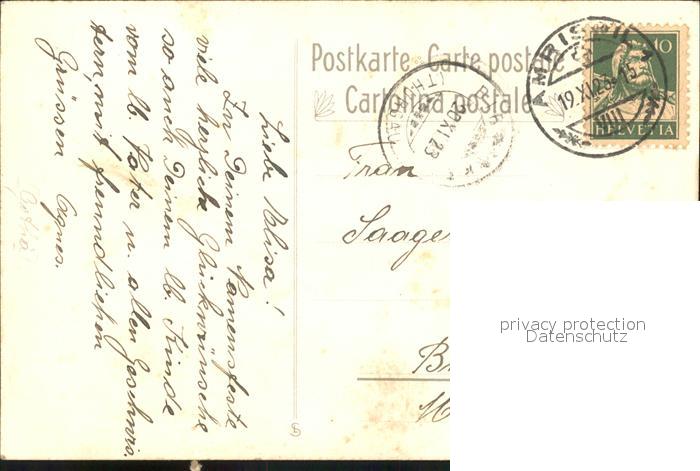 Postkarte - Carte postale
Cartolina postale
AMRISWIL
19.XI.23.-15
VIII
10
HELVETIA
(THURGAU)
20.XI.23
Liebe Elisa!
Zu Deinem Namensfeste
viele herzliche Glückwünsche
so auch Deinem lb. Kinde
vom lb. Vater u. allen Geschwis.
tern, mit freundlichen
Grüssen Agnes.
Frau
Saage
B
privacy protection
Datenschutz